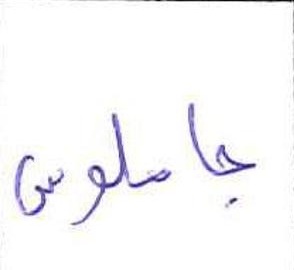 جاملوس